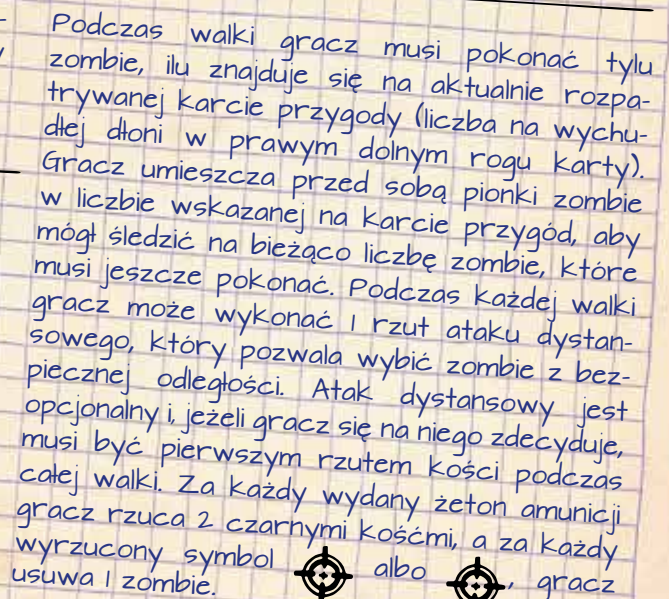 Podczas walki gracz musi pokonać tylu
zombie, ilu znajduje się na aktualnie rozpa-
trywanej karcie przygody (liczba na wychu-
dłej dłoni w prawym dolnym rogu karty).
Gracz umieszcza przed sobą pionki zombie
w liczbie wskazanej na karcie przygód, aby
mógł śledzić na bieżąco liczbę zombie, które
musi jeszcze pokonać. Podczas każdej walki
gracz może wykonać 1 rzut ataku dystan-
sowego, który pozwala wybić zombie z bez-
piecznej odległości. Atak dystansowy jest
opcjonalny i, jeżeli gracz się na niego zdecyduje,
musi być pierwszym rzutem kości podczas
całej walki. Za każdy wydany żeton amunicji
gracz rzuca 2 czarnymi kośćmi, a za każdy
wyrzucony symbol albo , gracz
usuwa 1 zombie.